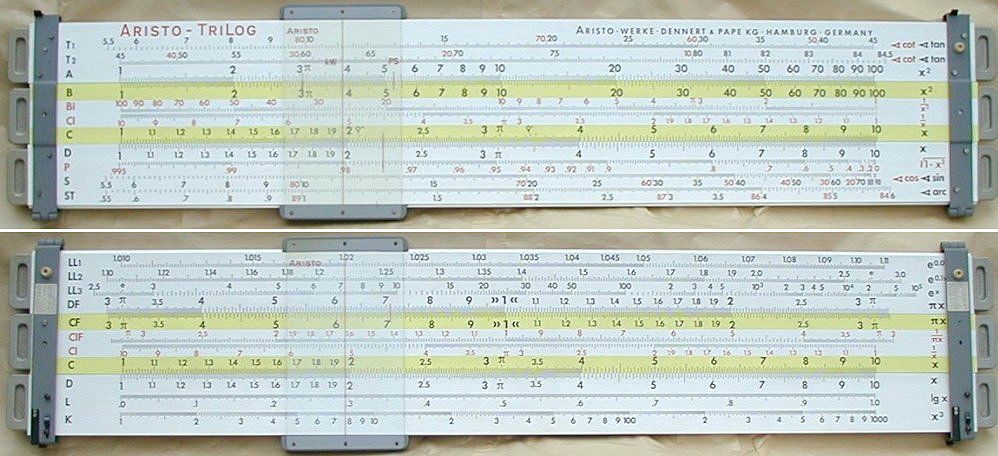 ARISTO-TRILOG ARISTO ARISTO-WERKE·DENNERT & PAPE KG·HAMBURG·GERMANY
T1 5.5 6 7 8 9 80,10 15 70,20 25 60,30 35 50,40 45 ◁ cot ◁ tan
T2 45 40,50 55 30,60 65 20,70 75 80 81 82 83 84 84.5 ◁ cot ◁ tan
kW PS
A 1 2 3 π 4 5 6 7 8 9 10 20 30 40 50 60 70 80 90 100 x²
B 1 2 3 π 4 5 6 7 8 9 10 20 30 40 50 60 70 80 90 100 x²
BI 100 90 80 70 60 50 40 30 20 10 9 8 7 6 5 4 π 3 2 1
CI 10 9 8 7 6 5 4 π 3 2.5 2 1.9 1.8 1.7 1.6 1.5 1.4 1.3 1.2 1.1 1
C 1 1.1 1.2 1.3 1.4 1.5 1.6 1.7 1.8 1.9 2 2.5 3 π 4 5 6 7 8 9 10 x
D 1 1.1 1.2 1.3 1.4 1.5 1.6 1.7 1.8 1.9 2 2.5 3 π 4 5 6 7 8 9 10 x
P .995 .99 .98 .97 .96 .95 .94 .93 .92 .91 .9 .8 .7 .6 .5 .4 .3 .2 0 √1-x²
S 5.5 6 7 8 9 80,10 15 70,20 25 60,30 35 50,40 50 60 70 80 90 ◁ cos ◁ sin
ST .55 .6 .7 .8 .9 89,1 1.5 88,2 2.5 87,3 3.5 86,4 85,5 84,6 ◁ arc
ARISTO
LL1 1.010 1.015 1.02 1.025 1.03 1.035 1.04 1.05 1.06 1.07 1.08 1.09 1.10 1.11
LL2 1.10 1.12 1.14 1.16 1.18 1.2 1.25 1.3 1.35 1.4 1.5 1.6 1.7 1.8 1.9 2.0 2.5 e 3.0
LL3 2.5 e 3 4 5 6 7 8 9 10 15 20 30 40 50 100 2 3 4 5
DF 3 π 3.5 4 5 6 7 8 9 »1« 1.1 1.2 1.3 1.4 1.5 1.6 1.7 1.8 1.9 2 2.5 3 π πx
CF 3 π 4 5 6 7 8 9 »1« 1.1 1.2 1.3 1.4 1.5 1.6 1.7 1.8 1.9 2 2.5 3 π πx
CIF π 3 2.5 2 1.9 1.8 1.7 1.6 1.5 1.4 1.3 1.2 1.1 9 8 7 6 5 4 3.5 π 3
CI 10 9 8 7 6 5 4 π 3 2.5 2 1.9 1.8 1.7 1.6 1.5 1.4 1.3 1.2 1.1 1
C 1 1.1 1.2 1.3 1.4 1.5 1.6 1.7 1.8 1.9 2 2.5 3 π 3.5 4 5 6 7 8 9 10 x
D 1 1.1 1.2 1.3 1.4 1.5 1.6 1.7 1.8 1.9 2 2.5 3 π 3.5 4 5 6 7 8 9 10 x
L .0 .1 .2 .3 .4 .5 .6 .7 .8 .9 1.0 lg x
K 1 2 3 4 5 6 7 8 9 10 2 3 4 5 6 7 8 9 100 2 3 4 5 6 7 8 9 1000 x³